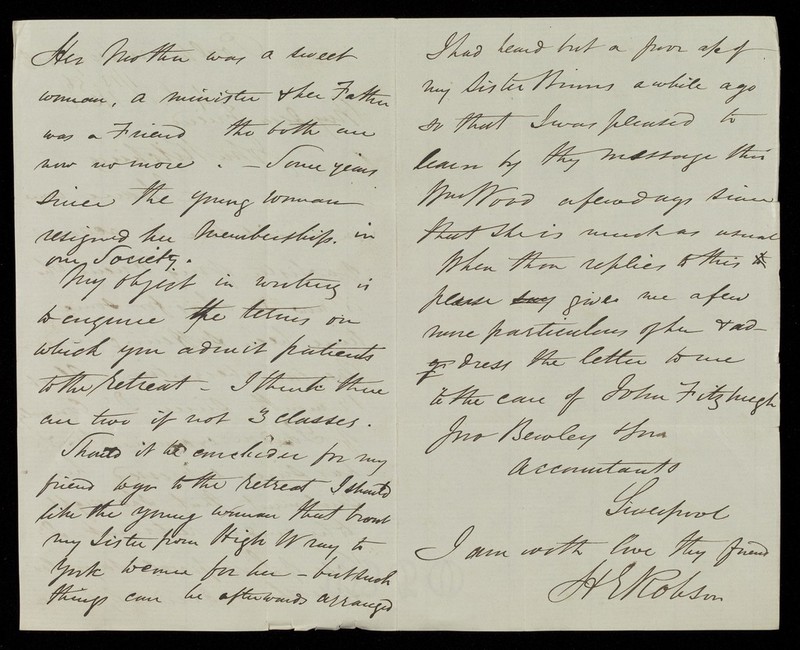 Her Mother was a sweet
woman, a minister & her Father
was a Friend the both are
now no more . - Some years
since the young woman
resigned her Membership. in
our Society.
My object in writing is
to enquire the terms on
which you admit patients
to the Retreat - I think there
are two if not 3 classes.
Should it be concluded for my
friend to go to the Retreat I should
like the young woman that brot
my Sister from High Wray to
York to come for her - but such
things can be afterwards arranged
I had heard but a poor a/c of
my Sister Binns a while ago
so that I was pleased to
learn by thy message thro'
Wm Wood a few days since
that she is much as usual
When thou replies to this
please say give me a few
more particulars of her & ad-
dress the letter to me
to the care of John Fitzhugh
Jno Bewley & Son
Accountants
Liverpool
I am with love thy friend
H E Robson